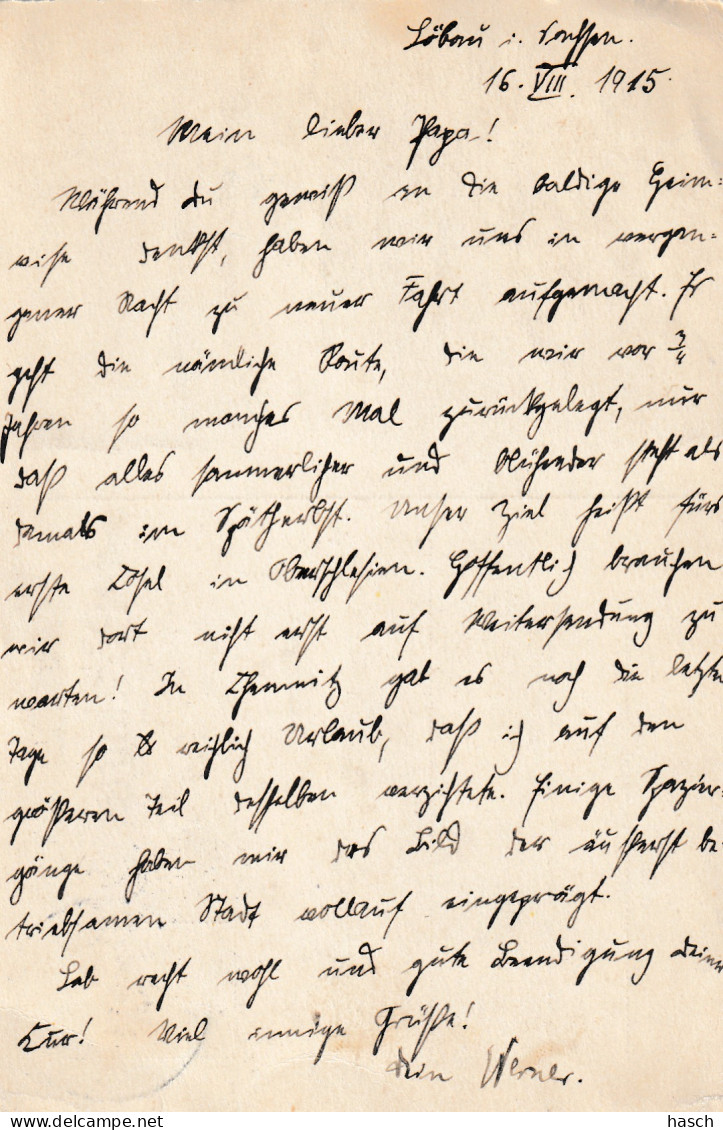 Löbau i. Sachsen.
16. VIII. 1915.
Mein lieber Papa!
Während Du gewiß an die baldige Heim-
reise denkst, haben wir uns in vergan-
gener Nacht zu neuer Fahrt aufgemacht. Es
geht die nämliche Route, die wir vor 3/4
Jahren so manches Mal zurückgelegt, nur
daß alles sommerlicher und blühender steht als
damals im Spätherbst. Unser Ziel heißt fürs
erste Cosel in Oberschlesien. Hoffentlich brauchen
wir dort nicht erst auf Weitersendung zu
warten! In Chemnitz gab es noch die letzten
Tage so reichlich Urlaub, daß ich auf den
größeren Teil desselben verzichtete. Einige Spazier-
gänge haben mir das Bild der äußerst be-
triebsamen Stadt vollauf eingeprägt.
Leb recht wohl und gute Beendigung Deiner
Kur! Viel innige Grüße!
Dein Werner.
hasch